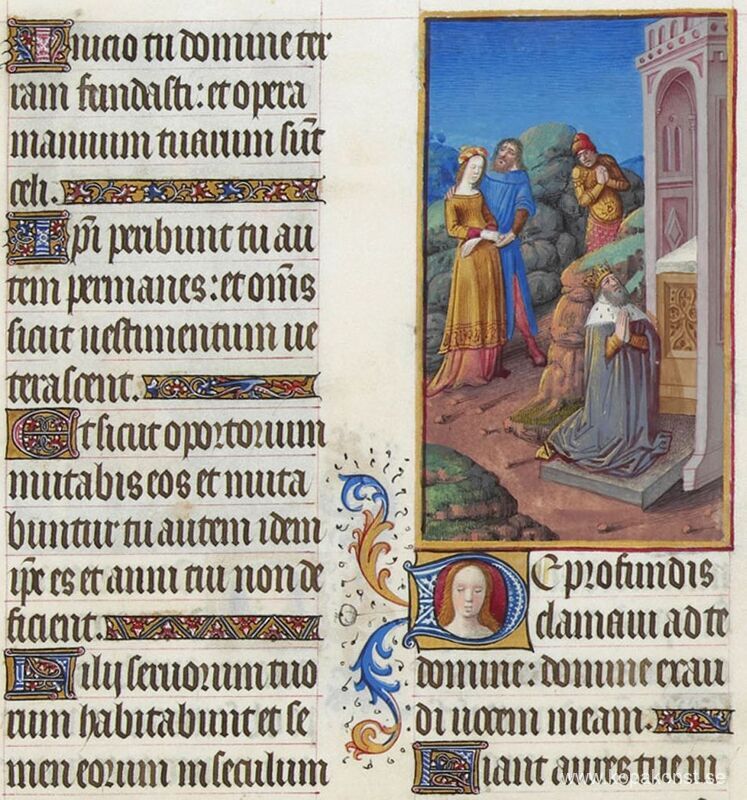 Inicio tu domine ter
ram fundasti: et opera
manuum tuarum sūt
celi.
Ipi peribunt tu au
tem permanes: et om̄s
sicut uestimentum ue
terascent.
Et sicut oportorium
mutabis eos et muta
buntur tu autem idem
ip̄e es et anni tui non de
ficient.
Filij seruorum tuo
rum habitabunt et se
men eorum in seculum
De profundis
clamaui ad te
domine: domine exau
di uocem meam.
Fiant aures tue in
www.kopakonst.se